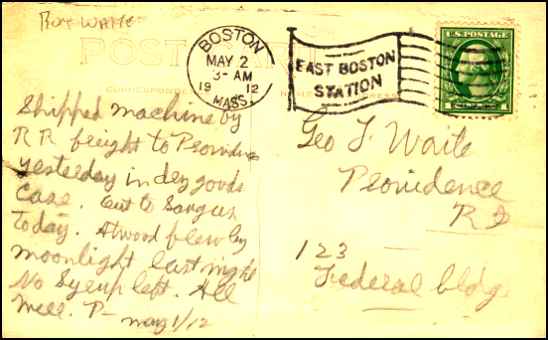 ROY WAITE
POST CARD
BOSTON
MAY 2
3-AM
19 12
MASS.
EAST BOSTON
STATION
U.S. POSTAGE
CORRESPONDENCE
Shipped machine by
RR freight to Providence
yesterday in dry goods
Case. Out to Saugus
Today. Atwood flew by
moonlight last night
No Syrup left. All
Well. P-
may 1/12
Geo F Waite
Providence
R I
123
Federal bldg.